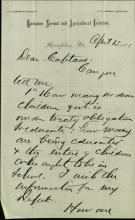 Hampton Normal and Agricultural Institute,
Hampton, Va., April 2, 188
Dear Captain:
Can you
tell me
1st How many In dian
children gov't is
under treaty obligation
to educate? how many
are being educated
& the entire # children
who ought to be in
school. I wish this
information for my
Report
How are